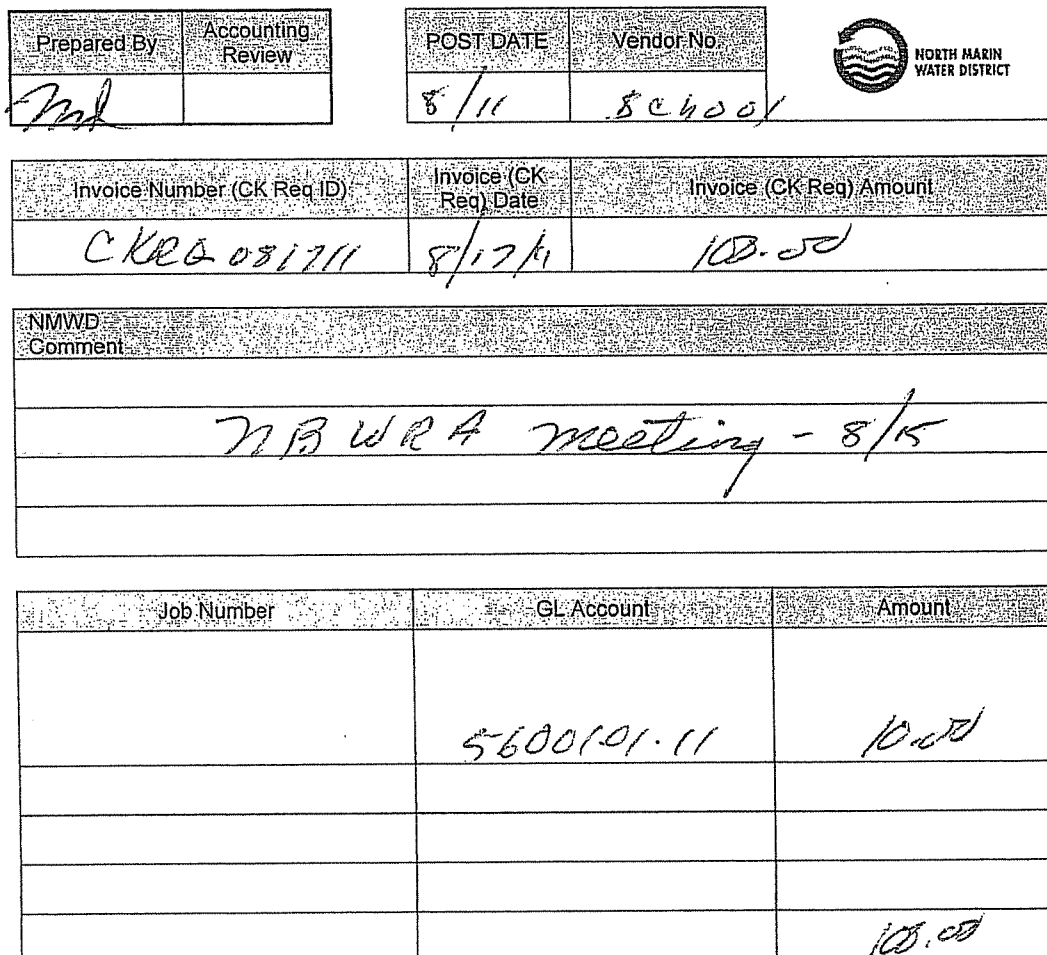 Prepared By Accounting Review POST DATE Vendor No. NORTH MARIN WATER DISTRICT
8/11 School
Invoice Number (CK Req ID) Invoice (CK Req) Date Invoice (CK Req) Amount
CKRQ 081711 8/17/11
NMWD Comment
NBWRA meeting - 8/15
Job Number GL Account Amount
5600101.11